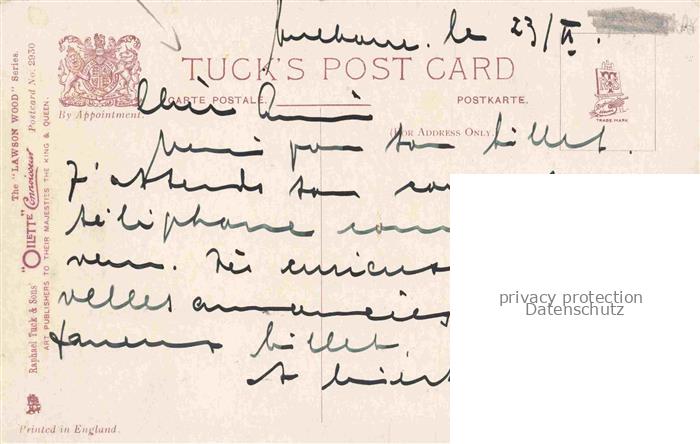 le 23/II.
TUCK'S POST CARD
CARTE POSTALE.
POSTKARTE.
By Appointment.
(FOR ADDRESS ONLY.)
TRADE MARK
The "LAWSON WOOD" Series.
Postcard No. 2930
"OILETTE" Connoisseur
Raphael Tuck & Sons'
ART PUBLISHERS TO THEIR MAJESTIES THE KING & QUEEN.
Printed in England.
Cher Ami
Merci pour ton billet.
J'attends ton
téléphone
venu. Très
velles annoncées
fameux billet.
A
privacy protection
Datenschutz